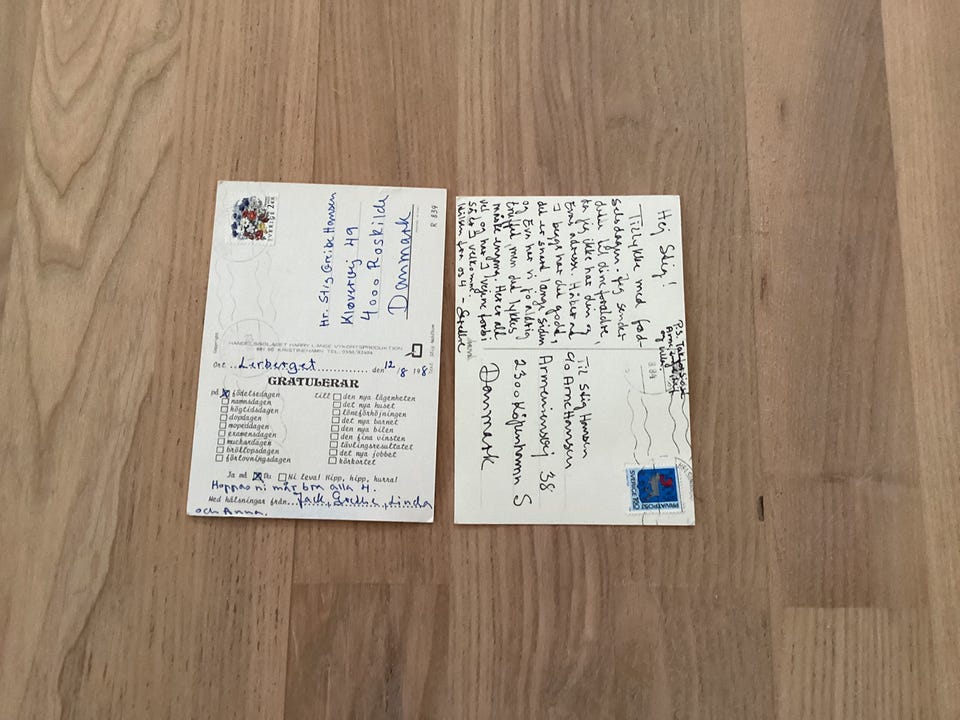 SVERIGE 2 KR
R 839
Hr. Stig Greibe Hansen
Kløvervej 49
4000 Roskilde
Danmark
HANDELSBOLAGET HARRY LANGE VYKORTSPRODUKTION
681 00 KRISTINEHAMN TEL. 0550/82404
Ort Lerberget den 12/8 1988
GRATULERAR
på till
födelsedagen
namnsdagen
högtidsdagen
dopdagen
mopeddagen
examensdagen
muckardagen
bröllopsdagen
förlovningsdagen
den nya lägenheten
det nya huset
löneförhöjningen
det nya barnet
den nya bilen
den fina vinsten
tävlingsresultatet
det nya jobbet
körkortet
Ja må Du Ni leva! Hipp, hipp, hurra!
Hoppas ni mår bra alla 4.
Med hälsningar från Jack, Grethe, Linda
och Anna.
Hej Stig!
Tillykke med fød-
selsdagen. Jeg sender
dette til dine forældre,
da jeg ikke har din og
Evas adresse. Håber at
I begge har det godt,
det er snart længe siden
og Eva har vi jo aldrig
truffet, men det lykkes
måske engang. Her er alt
vel og har I vejene forbi
så er I velkomne.
Hilsen fra os 4 - Grethe
P.S. Tak for sidst
Arne
og
839
Til Stig Hansen
c/o Arne Hansen
Armeniensvej 38
2300 København S
Danmark
SVERIGE
PRIVATPOST